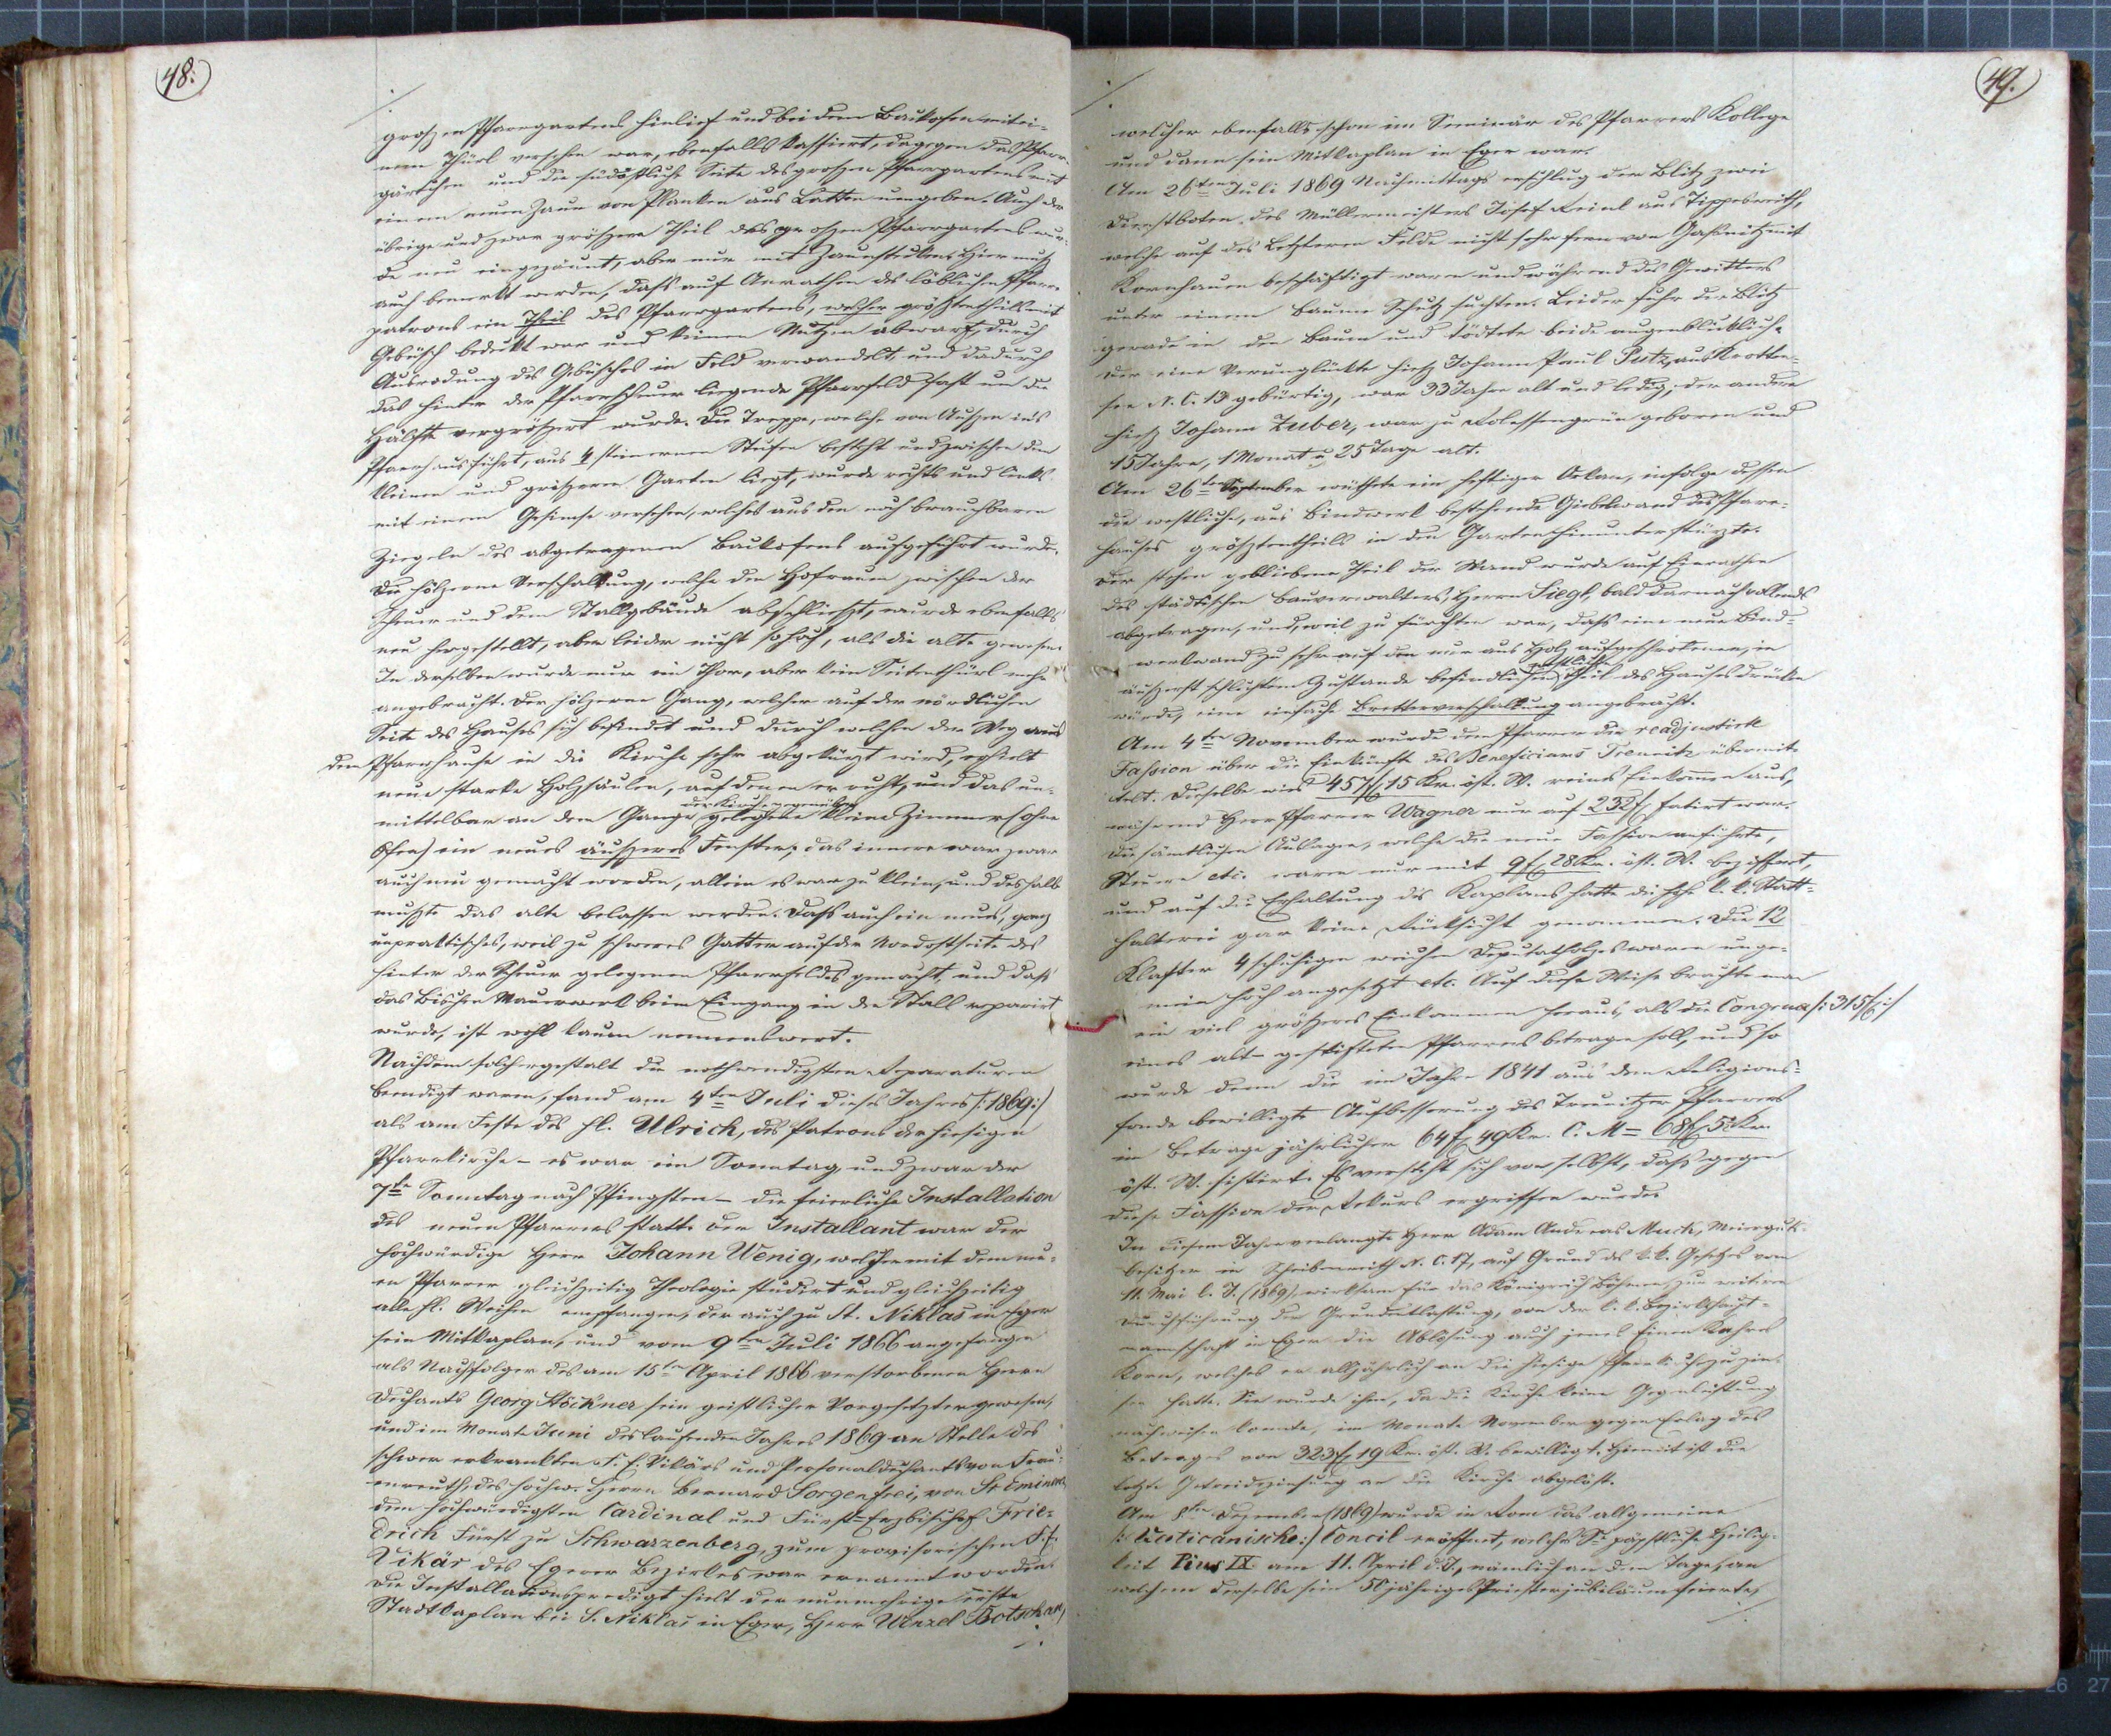 48.
großen Pfarrgartens hinlief und bei dem Backofen mit ei-
nem Thürl versehen war, ebenfalls kassiert, dagegen das Pfarr-
gärtchen und die südöstliche Seite des großen Pfarrgartens mit
einem neuen Zaun von Planken aus Latten umgeben. Auch der
übrige und zwar größere Theil des großen Pfarrgartens wur-
de neu eingezäunt, aber nur mit Zaunstecken. Hier muß
auch bemerkt werden, daß auf Anrathen des löblichen Pfarr-
patrons ein Theil des Pfarrgartens, welcher größtentheils mit
Gebüsch bedekt war und keinen Nutzen abwarf, durch
Ausrodung des Gebüsches in Feld verwandelt und dadurch
das hinter der Pfarrscheuer liegende Pfarrfeld fast um die
Hälfte vergrößert wurde. Die Treppe, welche von Außen in's
Pfarrhaus führt, aus 4 steinernen Stufen besteht und zwischen dem
kleinen und größeren Garten liegt, wurde rechts und links
mit einem Gesimse versehen, welches aus den noch brauchbaren
Ziegeln des abgetragenen Backofens aufgeführt wurde.
Die hölzerne Verschallung, welche den Hofraum zwischen der
Scheuer und dem Stallgebäude abschließt, wurde ebenfalls
neu hergestellt, aber leider nicht so hoch, als die alte gewesen.
In derselben wurde nur ein Thor, aber kein Seitenthürl mehr
angebracht. Der hölzerne Gang, welcher auf der nördlichen
Seite des Hauses sich befindet und durch welchen der Weg aus
dem Pfarrhause in die Kirche sehr abgekürzt wird, erhielt
neue starke Holzsäulen, auf denen er ruht, und das un-
der Kirche gegenüber
mittelbar an dem Gange gelegene kleine Zimmer (ohne
Ofen) ein neues äußeres Fenster; das innere war zwar
auch neu gemacht worden, allein es war zu klein, und deshalb
mußte das alte belassen werden. Daß auch ein neues, ganz
unpraktisches, weil zu schweres Gatter auf der Nordostseite des
hinter der Scheuer gelegenen Pfarrfeldes gemacht, und daß
das Bischen Mauerwerk beim Eingang in den Stall reparirt
wurde, ist wohl kaum nennenswert.
Nachdem solchergestalt die nothwendigsten Reparaturen
beendigt waren, fand am 4ten Juli dieses Jahres /:1869:/
als am Feste des hl. Ulrich, des Patrons der hiesigen
Pfarrkirche – es war ein Sonntag und zwar der
7te Sonntag nach Pfingsten – die feierliche Installation
des neuen Pfarrers statt. Der Installant war der
hochwürdige Herr Johann Wenig, welcher mit dem neu-
en Pfarrer gleichzeitig Theologie studirt und gleichzeitig
alle hl. Weihen empfangen, der auch zu St. Niklas in Eger
sein Mitkaplan, und vom 9ten Juli 1866 angefangen
als Nachfolger des am 15ten April 1866 verstorbenen Herrn
Dechants Georg Stöckner sein geistlicher Vorgesetzter gewesen,
und im Monate Juni des laufenden Jahres 1869 an Stelle des
schwer erkrankten f. e. Vikärs und Personaldechants von Frau-
enreuth, des hochw. Herrn Bernard Sorgenfrei, von Sr Eminenz,
dem hochwürdigsten Cardinal und Fürst-Erzbischof Frie-
drich Fürst zu Schwarzenberg, zum provisorischen f. e.
Vikär des Egerer Bezirkes war ernannt worden.
Die Installationspredigt hielt der nunmehrige erste
Stadtkaplan bei S. Niklas in Eger, Herr Wenzel Botschan,
49.
welcher ebenfalls schon im Seminär des Pfarrers Kollege
und dann sein Mitkaplan in Eger war.
Am 26ten Juli 1869 Nachmittags erschlug der Blitz zwei
Dienstboten des Müllermeisters Josef Reinl aus Tippesreith,
welche auf des Letzteren Felde nicht sehr fern von Gaßnitz mit
Kornhauen beschäftigt waren und während des Gewitters
unter einem Baume Schutz suchten. Leider fuhr der Blitz
gerade in den Baum und tödtete beide augenblicklich.
Der eine Verunglückte hieß Johann Paul Putz, aus Krotten-
see N. C. 13 gebürtig, war 33 Jahre alt und ledig, der andere
hieß Johann Zuber, war zu Rolessengrün geboren und
15 Jahre, 1 Monat u 25 Tage alt.
Am 26ten September wüthete ein heftiger Orkan, infolge dessen
die westliche, aus Bindwerk bestehende Giebelwand des Pfarr-
hauses größtentheils in den Garten hinunterstürzte.
Der stehen gebliebene Theil der Wand wurde auf Einrathen
des städtischen Bauverwalters Herrn Siegl, bald darnach vollends
abgetragen, und, weil zu fürchten war, daß eine neue Bind-
werkwand zu sehr auf den nur aus Holz aufgeschrotenen, in
westlichen
äußerst schlechtem Zustande befindlichen Theil des Hauses drücken
würde, eine einfache Bretterverschallung angebracht.
Am 4ten November wurde dem Pfarrer die readjustirte
Fassion über die Einkünfte des Beneficiums Treunitz übermit-
telt. Dieselbe wies 457 fl 15 Kr. öst. W. reines Einkommen aus,
während Herr Pfarrer Wagner nur auf 232 fl fatirt war.
Die sämtlichen Auslagen, welche die neue Fassion anführte,
Steuern etc. waren nur mit 9 fl 28 Kr. öst. W. beziffert,
und auf die Erhaltung des Kaplans hatte die hohe k. k. Statt-
halterei gar keine Rücksicht genommen. Die 12
Klafter 4 schuhigen weichen Deputatholzes waren unge-
mein hoch angesetzt etc. Auf diese Weise brachte man
ein viel größeres Einkommen heraus, als die Congrua /:315 fl:/
eines alt-gestifteten Pfarrers betragen soll, und so
wurde denn die im Jahre 1841 aus dem Religions-
fonde bewilligte Aufbesserung des Treunitzer Pfarrers
im Betrage jährlicher 64 fl 49 Kr. C. M = 68 fl 5 Kr.
öst. W. sistirt. Es versteht sich von selbst, daß gegen
diese Fassion der Rekurs ergriffen wurde.
In diesem Jahre verlangte Herr Adam Andreas Muck, Meierguts-
besitzer in Scheibenreith N. C. 17, auf Grund des k. k. Gesetzes vom
11. Mai l. J. (1869), wirksam für das Königreich Böhmen, zur weitern
Durchführung der Grundentlastung, von der k. k. Bezirkshaupt-
mannschaft in Eger die Ablösung auch jenes Einen Kahres
Korn, welches er alljährlich an die hiesige Pfarrkirche zu zin-
sen hatte. Sie wurde ihm, da die Kirche keine Gegenleistung
nachweisen konnte, im Monate November gegen Erlag des
Betrages von 323 fl 19 Kr. öst. W. bewilligt. Hiemit ist die
letzte Getreidezinsung an die Kirche abgelöst.
Am 8ten Dezember (1869) wurde in Rom das allgemeine
/: Vaticanische :/ Concil eröffnet, welches Se päpstliche Heilig-
keit Pius IX. am 11. April d. J., nämlich an dem Tage, an
welchem derselbe sein 50 jähriges Priesterjubiläum feierte,